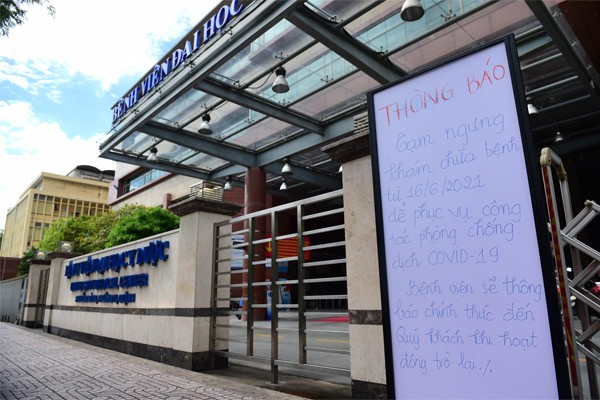 BỆNH VIỆN ĐẠI HỌC
BỆNH VIỆN ĐẠI HỌC Y DƯỢC
THÔNG BÁO
Tạm ngưng
khám chữa bệnh
từ 16/6/2021
để phục vụ công
tác phòng chống
dịch COVID-19
Bệnh viện sẽ thông
báo chính thức đến
Quý khách khi hoạt
động trở lại./.